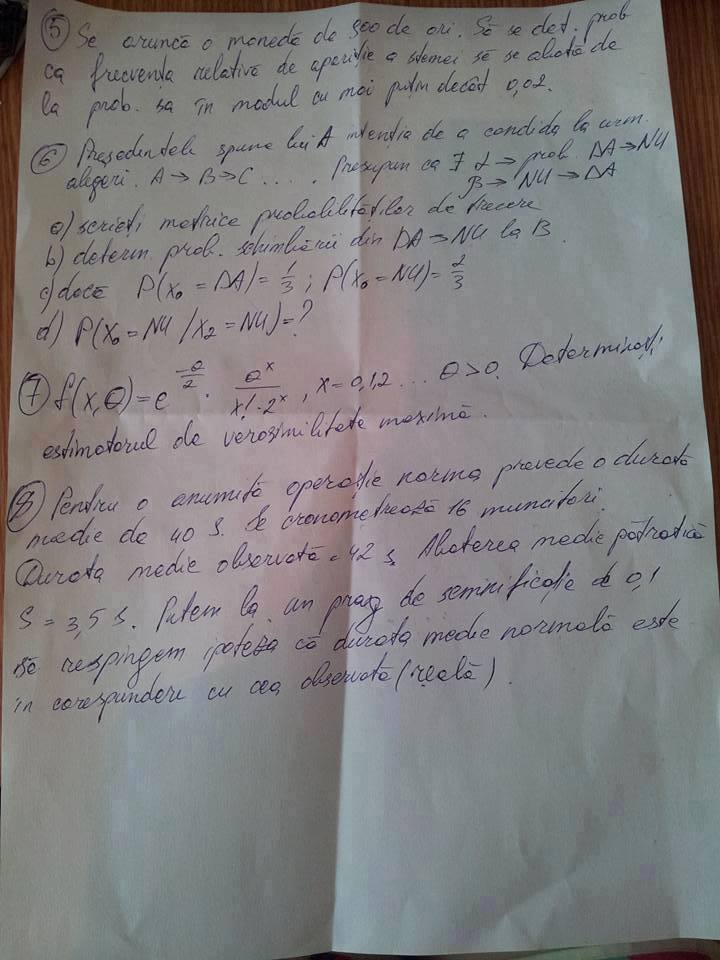 ⑤ Se aruncă o monedă de 500 de ori. Să se det. prob
ca frecvența relativă de apariție a stemei să se abată de
la prob. sa în modul cu mai puțin decât 0,02.
⑥ Președintele spune lui A intenția de a candida la urm.
alegeri. A → B → C ..... Presupun ca ∃ α → prob. DA → NU
β → NU → DA
a) scrieți matricea probabilităților de trecere
b) determ. prob. schimbării din DA → NU la B.
c) dacă P(x₀ = DA) = 1/3 ; P(x₀ = NU) = 2/3
d) P(x₀ = NU / x₂ = NU) = ?
⑦ f(x, θ) = e^(-θ/2) · θ^x / (x! · 2^x) , x = 0,1,2 ... θ > 0. Determinați
estimatorul de verosimilitate maximă.
⑧ Pentru o anumită operație norma prevede o durată
medie de 40 s. Se cronometrează 16 muncitori.
Durata medie observată = 42 s. Abaterea medie pătratică
S = 3,5 s. Putem la un prag de semnificație de 0,1
să respingem ipoteza că durata medie normală este
în corespundere cu cea observată (reală).